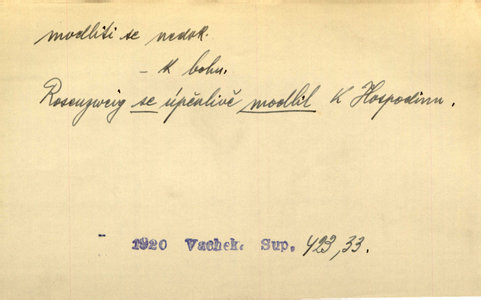 modliti se nedok.
– k bohu.
Rosenzweig se úpěnlivě modlil k Hospodinu.
– 1920 Vachek. Sup. 423,33.